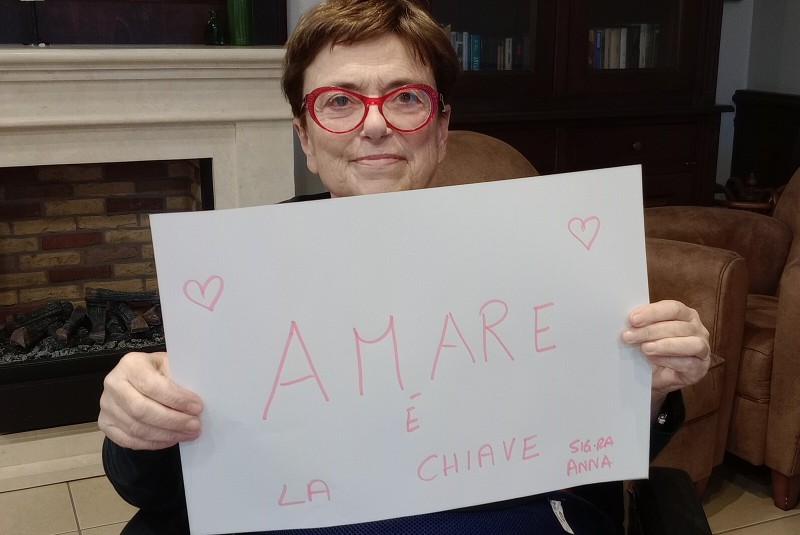 AMARE
É
LA CHIAVE
SIG.RA
ANNA